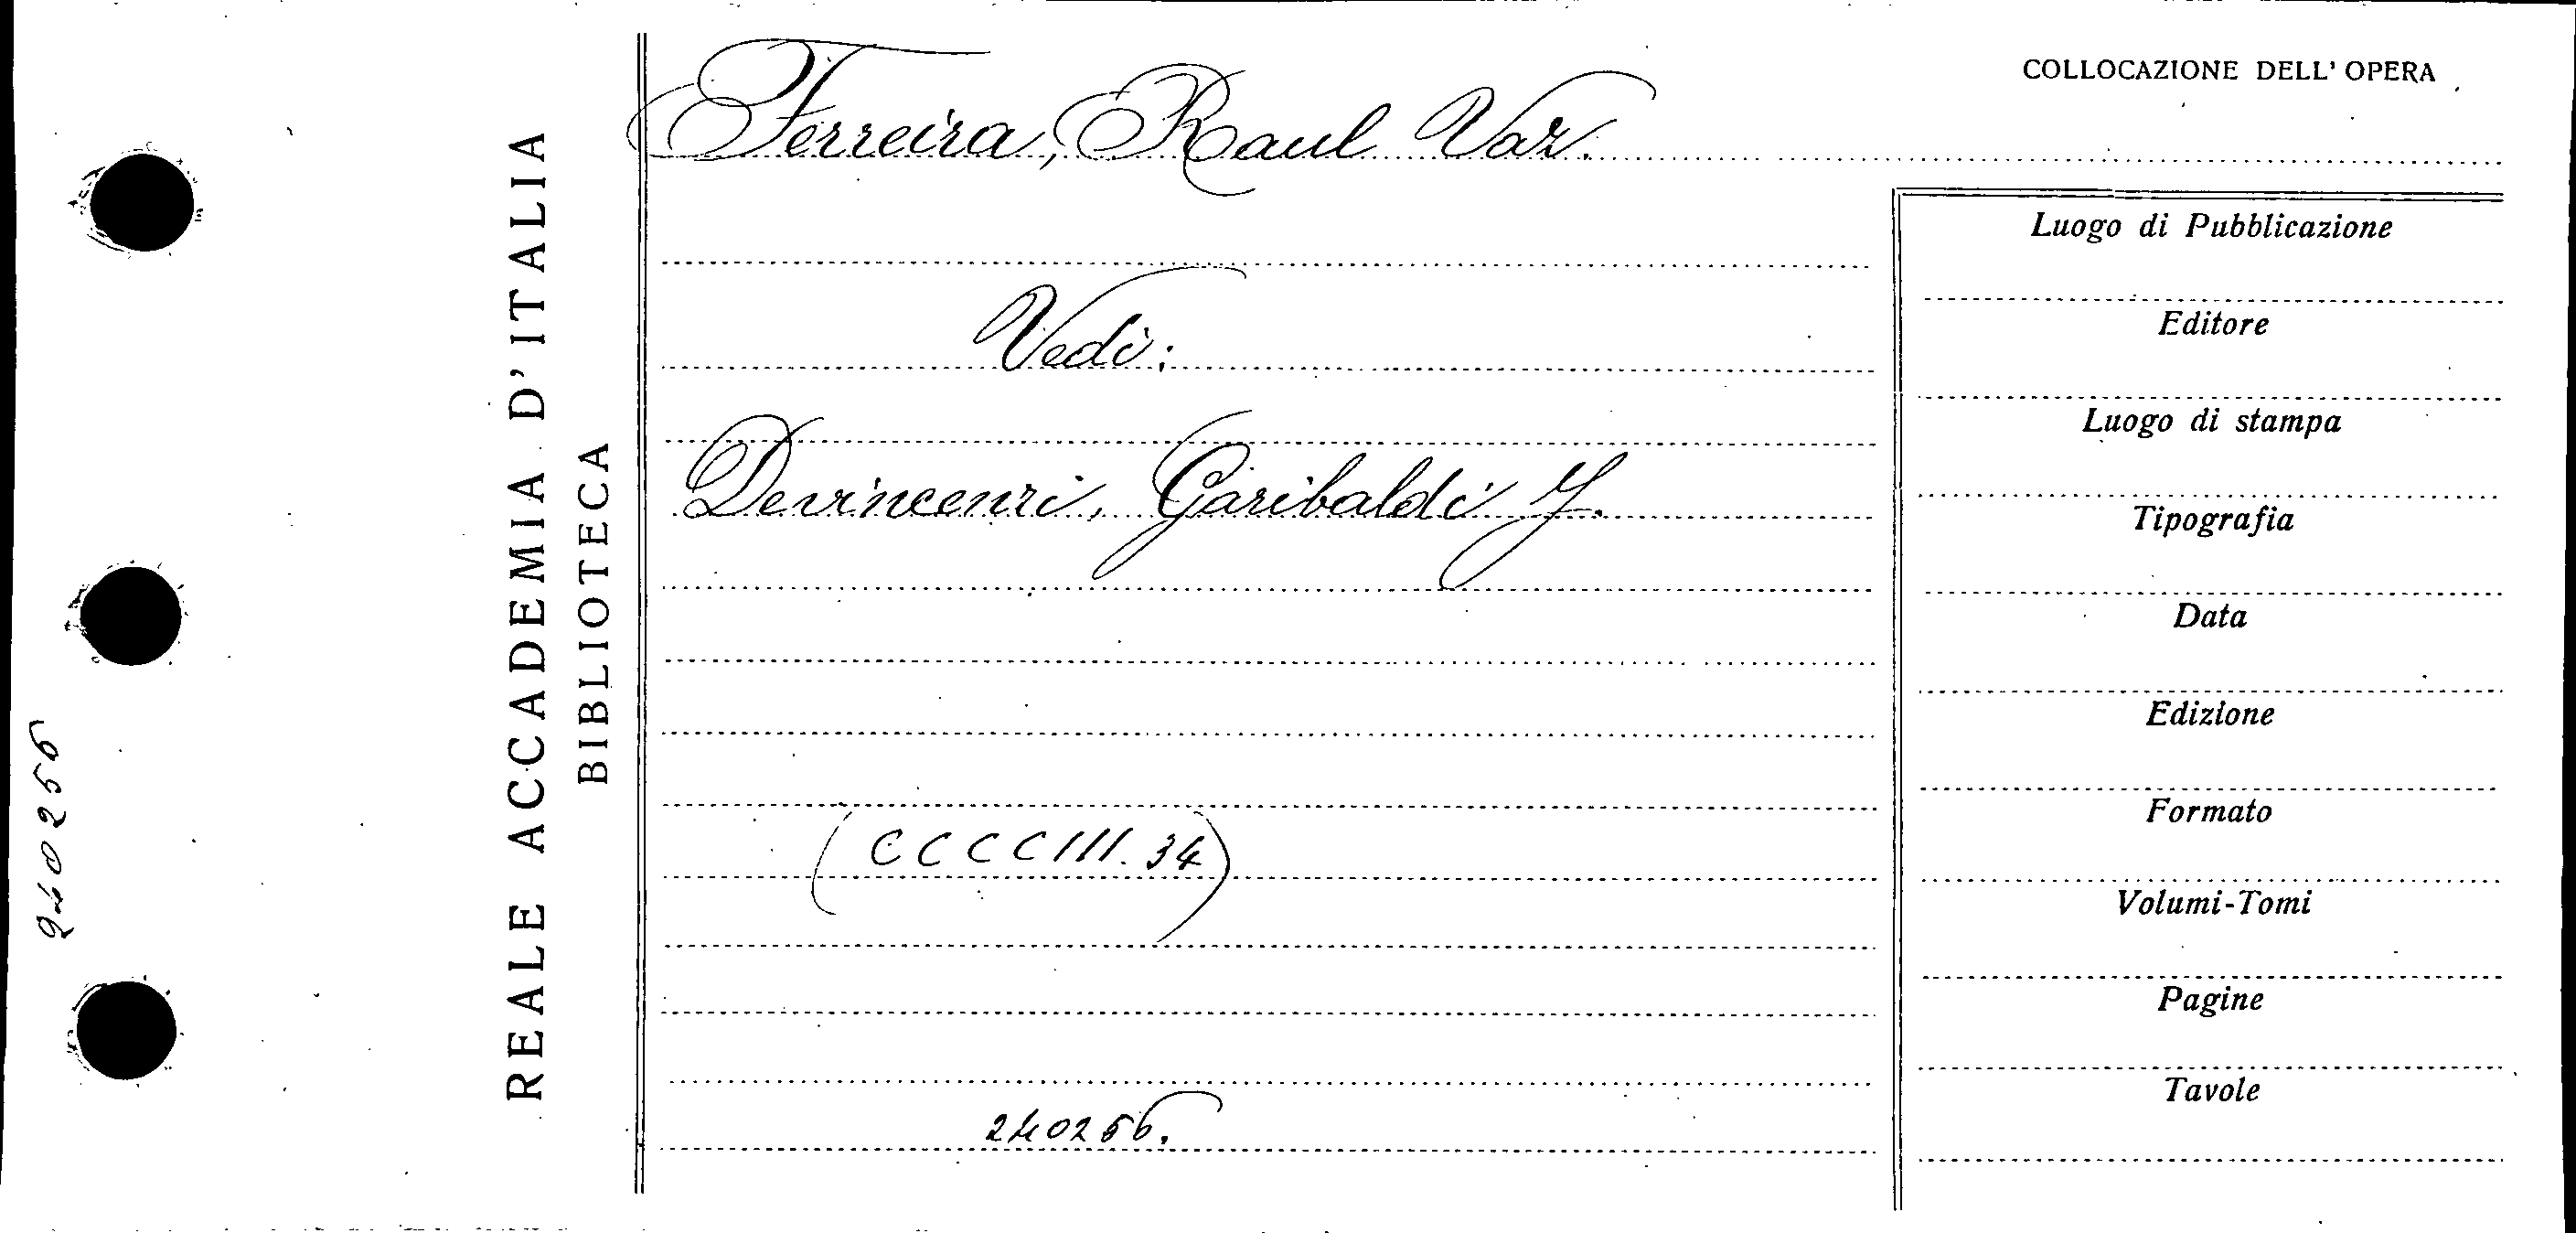 Ferreira, Raul Vaz.
Vedi:
Devincenzi, Garibaldi J.
(CCCCIII. 34)
240256.
COLLOCAZIONE DELL' OPERA
Luogo di Pubblicazione
Editore
Luogo di stampa
Tipografia
Data
Edizione
Formato
Volumi-Tomi
Pagine
Tavole
REALE ACCADEMIA D'ITALIA
BIBLIOTECA
240256